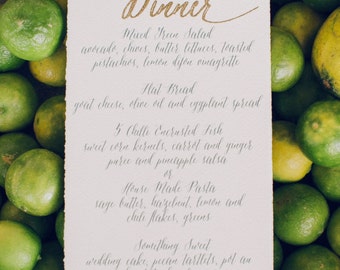 Dinner
Mixed Green Salad
avocado, chives, butter lettuces, toasted
pistachios, lemon dijon vinaigrette
Flat Bread
goat cheese, olive oil and eggplant spread
5 Chille Encrusted Fish
sweet corn kernels, carrot and ginger
puree and pineapple salsa
or
House Made Pasta
sage butter, hazelnut, lemon and
chile flakes, greens
Something Sweet
wedding cake, pecan tartlets, pot au